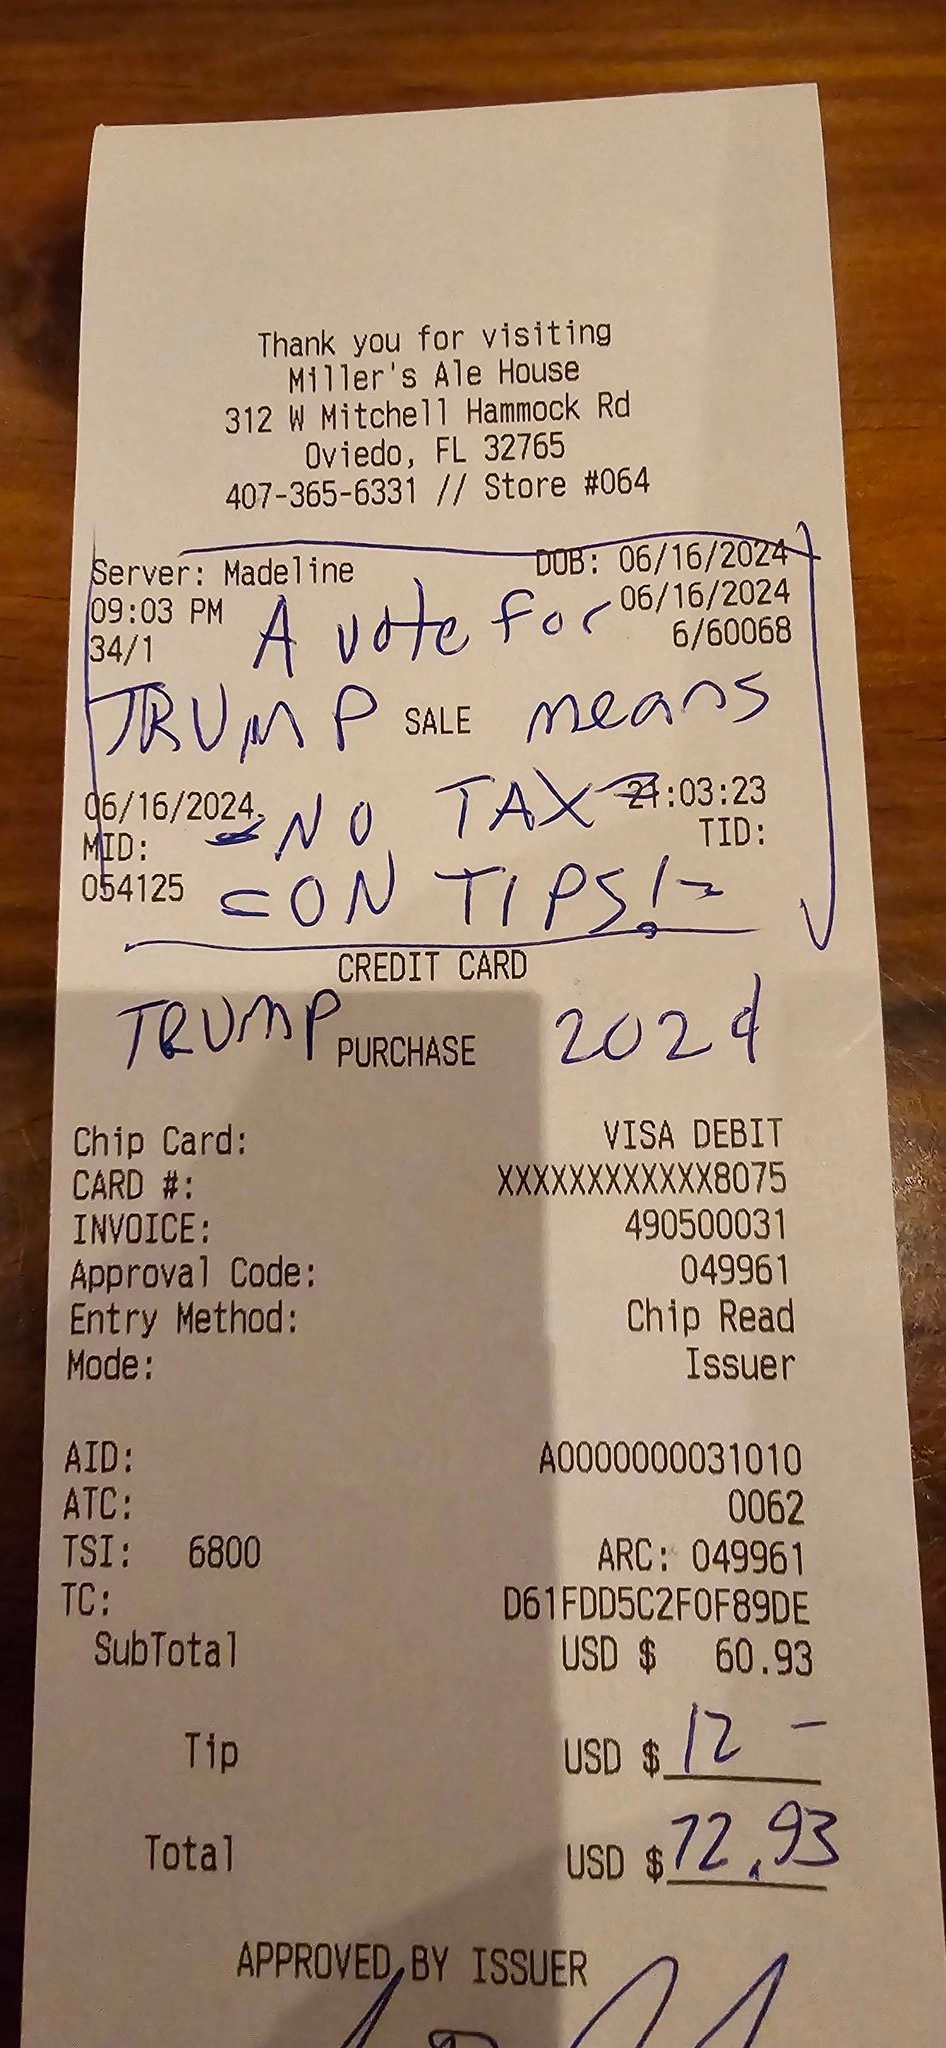 Thank you for visiting
Miller's Ale House
312 W Mitchell Hammock Rd
Oviedo, FL 32765
407-365-6331 // Store #064
Server: Madeline DOB: 06/16/2024
09:03 PM 06/16/2024
34/1 6/60068
A vote for
TRUMP means
SALE
06/16/2024 21:03:23
NO TAX
MID: TID:
054125
ON TIPS!
CREDIT CARD
TRUMP 2024
PURCHASE
Chip Card: VISA DEBIT
CARD #: XXXXXXXXXXXX8075
INVOICE: 490500031
Approval Code: 049961
Entry Method: Chip Read
Mode: Issuer
AID: A0000000031010
ATC: 0062
TSI: 6800 ARC: 049961
TC: D61FDD5C2F0F89DE
SubTotal USD $ 60.93
Tip USD $ 12 -
Total USD $ 72.93
APPROVED BY ISSUER